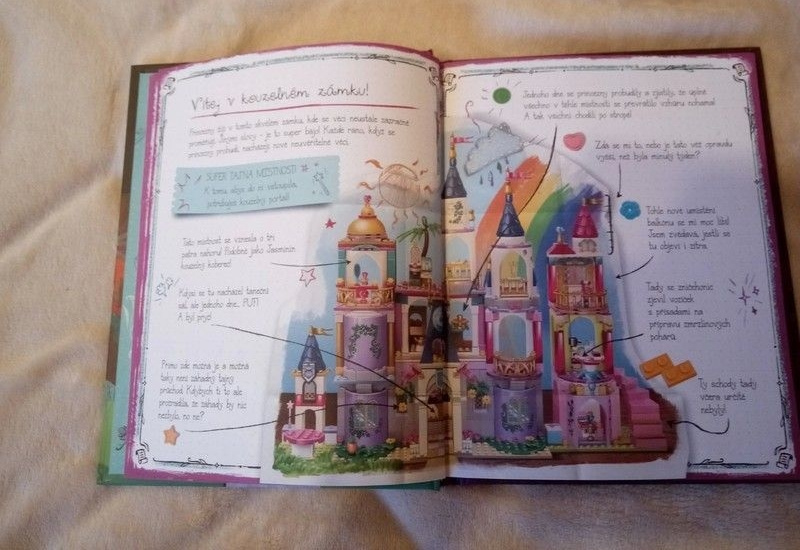 Vítej v kouzelném zámku!
Princezny žijí v tomto skvělém zámku, kde se věci neustále zázračně
proměňují. Jejími slovy - je to super bájo! Každé ráno, když se
princezny probudí, nacházejí nové neuvěřitelné věci.
SUPER TAJNÁ MÍSTNOST!
K tomu, abys do ní vstoupila,
potřebuješ kouzelný portál!
Tato místnost se vznesla o tři
patra nahoru! Podobně jako Jasmínin
kouzelný koberec!
Kdysi se tu nacházel taneční
sál, ale jednoho dne... PUF!
A byl pryč!
Přímo zde možná je a možná
taky není záhadný tajný
průchod. Kdybych ti to ale
prozradila, ze záhady by nic
nezbylo, no ne?
Jednoho dne se princezny probudily a zjistily, že úplně
všechno v téhle místnosti se převrátilo vzhůru nohama!
A tak všichni chodili po stropě!
Zdá se mi to, nebo je tato věž opravdu
vyšší, než byla minulý týden?
Tohle nové umístění
balkonu se mi moc líbí!
Jsem zvědavá, jestli se
tu objeví i zítra.
Tady se zničehonic
zjevil vozíček
s přísadami na
přípravu zmrzlinových
pohárů.
Ty schody tady
včera určitě
nebyly!